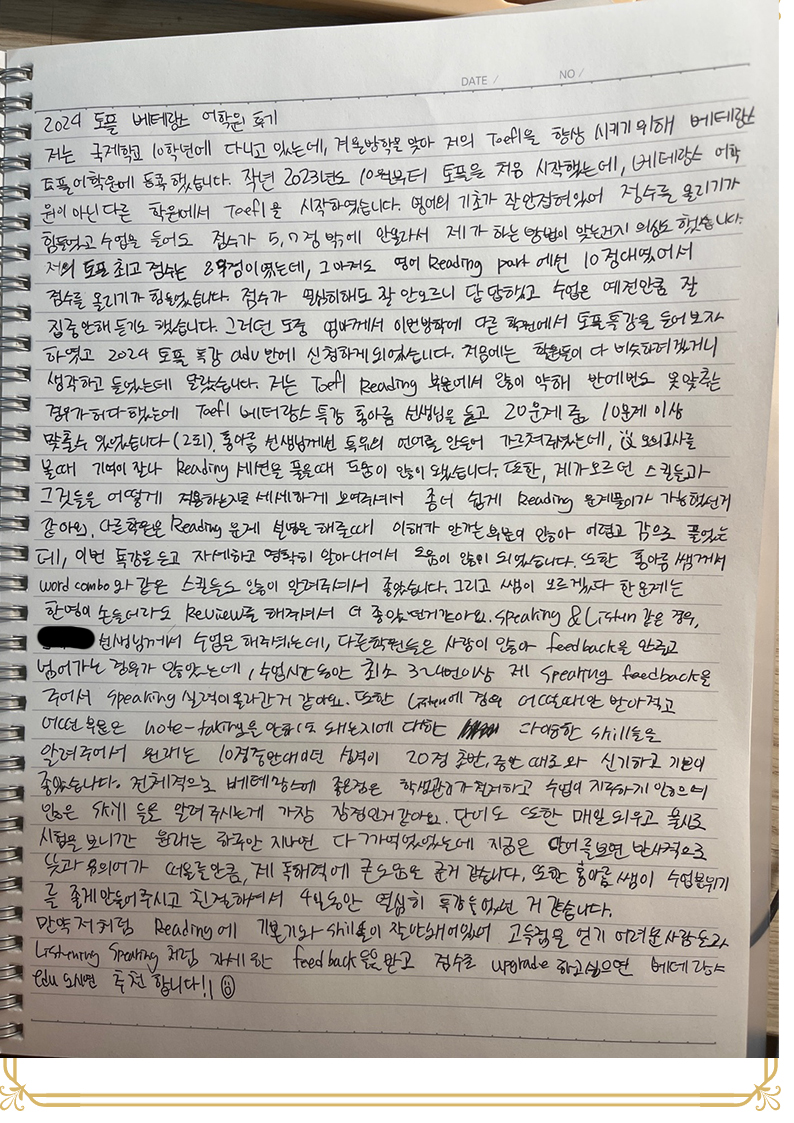 DATE / NO /
2024 토플 베테랑스 어학원 후기
저는 국제학교 10학년에 다니고 있는데, 겨울방학을 맞아 저의 Toefl을 향상 시키기 위해 베테랑스
토플어학원에 등록했습니다. 작년 2023년도 10월부터 토플을 처음 시작했는데, 베테랑스 어학
원이 아닌 다른 학원에서 Toefl을 시작하였습니다. 영어의 기초가 잘 안잡혀있어 점수를 올리기가
힘들었고 수업을 들어도 점수가 5,7점 밖에 안올라서 제가 하는 방법이 맞는건지 의심도 했습니다.
저의 토플 최고 점수는 이였는데, 그마저도 영어 Reading part 에선 10점대였어서
점수를 올리기가 힘들었습니다. 점수가 열심히해도 잘 안오르니 답답하였고 수업은 예전만큼 잘
집중안해 듣기도 했습니다. 그러던 도중 엄마께서 이번방학에 다른 학원에서 토플특강을 들어보자
하였고 2024 토플 특강 adv 반에 신청하게되었습니다. 처음에는 학원들이 다 비슷하겠거니
생각하고 들었는데 달랐습니다. 저는 Toefl Reading 부문에서 많이 약해 반에반도 못맞추는
경우가 허다했는데 Toefl 베테랑스 특강 홍아름 선생님을 듣고 20문제 중, 10문제 이상
맞출수 있었습니다 (2회). 홍아름 선생님께선 특유의 언어를 만들어 가르쳐주셨는데, 모의고사를
볼때 기억이 잘나 Reading 세션을 풀을때 도움이 많이 되었습니다. 또한, 제가 모르던 스킬들과
그것들을 어떻게 적용하는지도 세세하게 보여주셔서 좀더 쉽게 Reading 문제풀이가 가능했던거
같아요. 다른학원은 Reading 문제 설명을 해줄때 이해가 안가는 부분이 많아 어렵고 감으로 풀었는
데, 이번 특강을 듣고 자세하고 명확히 알아내어서 도움이 많이 되었습니다. 또한 홍아름 쌤께서
word combo 와 같은 스킬들도 많이 알려주셔서 좋았습니다. 그리고 쌤이 모르겠다 한 문제는
한명이 손들더라도 Review를 해주셔서 더 좋았던거같아요. Speaking & Listen 같은 경우,
선생님께서 수업을 해주셨는데, 다른학원들은 사람이 많아 feedback을 안주고
넘어가는 경우가 많았는데, 수업시간동안 최소 3~4번이상 제 Speaking feedback을
주어서 Speaking 실력이 올라간거 같아요. 또한 Listen에 경우 어떨때만 받아적고
어떤 부분은 note-taking을 안해도 돼는지에 대한 다양한 skill들을
알려주어서 원래는 10점중반대이던 실력이 20점 초반, 중반 때로와 신기하고 기분이
좋았습니다. 전체적으로 베테랑스에 좋은점은 학생관리가 철저하고 수업이 지루하지 않으며
많은 skill 들로 알려주시는게 가장 장점인거같아요. 단어도 또한 매일 외우고 불시로
시험을 보니간 원래는 하루만 지나면 다 까먹었었는데 지금은 단어를보면 반사적으로
뜻과 유의어가 떠올를만큼, 제 독해력에 큰도움도 준거 같습니다. 또한 홍아름 쌤이 수업분위기
를 좋게 만들어주시고 친절하셔서 4일동안 열심히 특강을 들었던 거 같습니다.
만약 저처럼 Reading에 기본기와 skill들이 잘안돼어있어 고득점을 얻기 어려운 사람들과
Listening Speaking 처럼 자세한 feedback을 받고 점수를 upgrade 하고싶으면 베테랑스
edu 오시면 추천 합니다!!